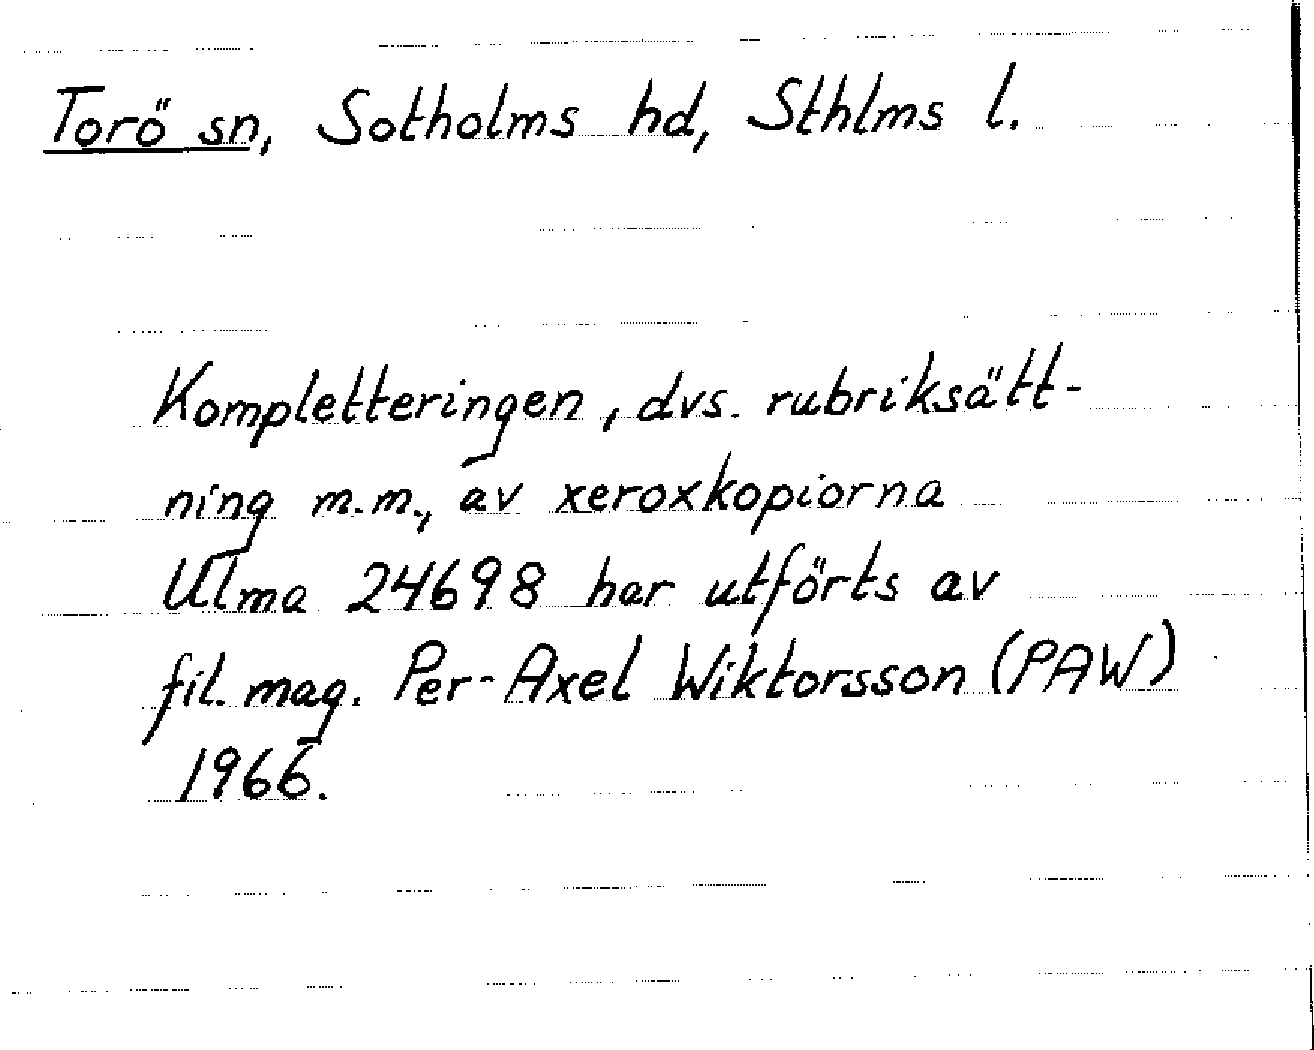 Torö sn, Sotholms hd, Sthlms l.
Kompletteringen, dvs. rubriksätt-
ning m.m., av xeroxkopiorna
Ulma 24698 har utförts av
fil. mag. Per-Axel Wiktorsson (PAW)
1966.